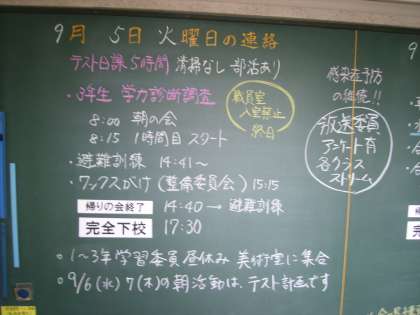 9月 5日 火曜日の連絡
テスト日課5時間 清掃なし 部活あり
・3年生 学力診断調査
8:00 朝の会
8:15 1時間目 スタート
職員室
入室禁止
終日
感染症予防
の継続!!
放送委員
アンケート有
各クラス
ストリーム
・避難訓練 14:41〜
・ワックスがけ(整備委員会) 15:15
帰りの会終了 14:40→避難訓練
完全下校 17:30
・1〜3年学習委員昼休み 美術室に集合
・9/6(水)7(木)の朝活動は、テスト計画です